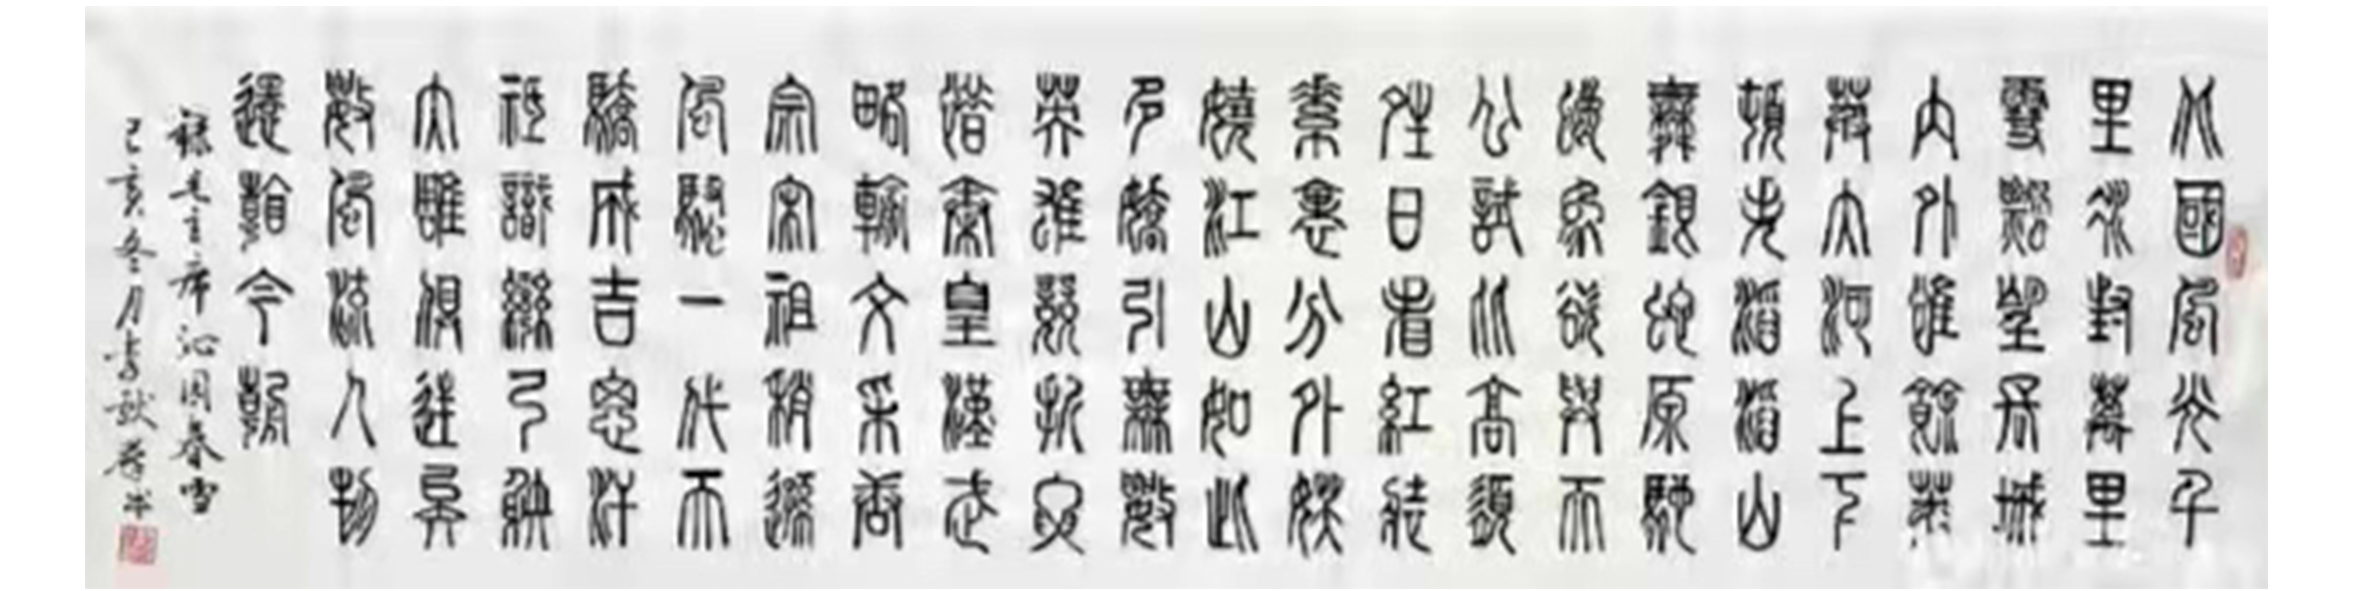 北國風光千
里冰封萬里
雪飄望長城
內外惟餘莽
莽大河上下
頓失滔滔山
舞銀蛇原馳
蠟象欲與天
公試比高須
晴日看紅裝
素裹分外妖
嬈江山如此
多嬌引無數
英雄競折腰
惜秦皇漢武
略輸文采唐
宗宋祖稍遜
風騷一代天
驕成吉思汗
祗識彎弓射
大雕俱往矣
數風流人物
還看今朝
錄毛主席沁園春雪
己亥冬月李秋